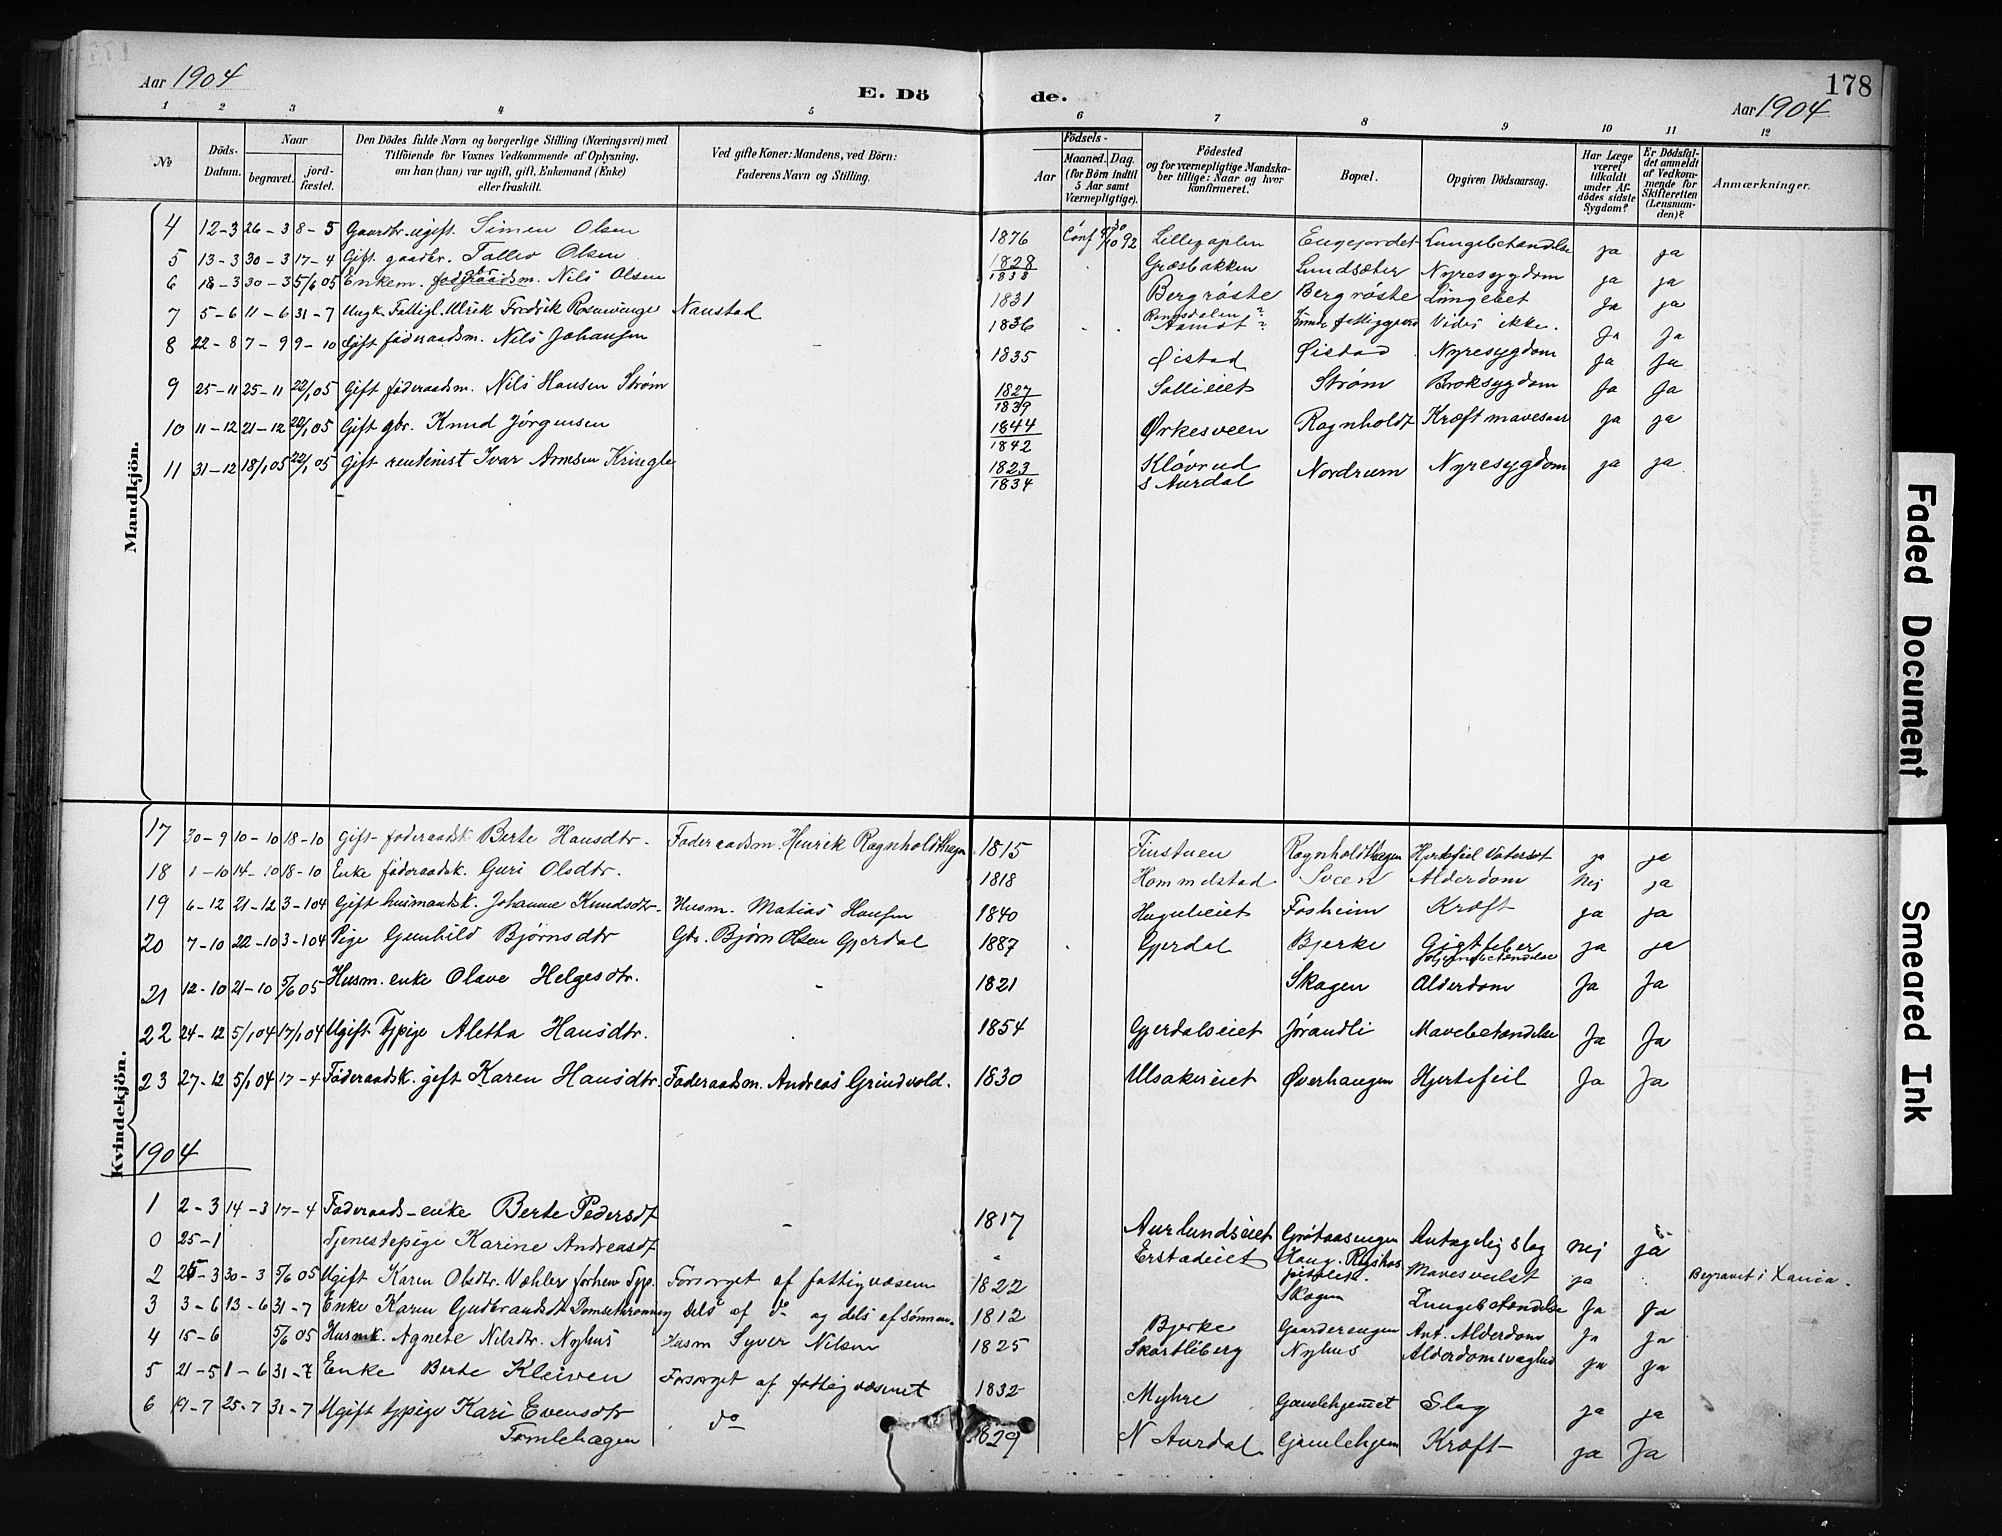 178
Aar 1904
E. Dö de.
Aar 1904
1 2 3 4 5 6 7 8 9 10 11 12
No
Döds-Datum.
Naar
begravet.
jord-fæstet.
Den Dödes fulde Navn og borgerlige Stilling (Næringsvei) med
Tilföiende for Voxnes Vedkommende af Oplysning,
om han (han) var ugift, gift, Enkemand (Enke)
eller fraskilt.
Ved gifte Koner: Mandens, ved Börn:
Faderens Navn og Stilling.
Födsels-
Aar
Maaned. Dag.
(for Börn indtil
5 Aar samt
Værnepligtige).
Födested
og for værnepligtige Mandska-
ber tillige: Naar og hvor
konfirmeret.
Bopæl.
Opgiven Dödsaarsag.
Har Læge
været
tilkaldt
under Af-
dödes sidste
Sygdom?
Er Dödsfal-
det anmeldt
af Vedkom-
mende for
Skifteretten
(Lensman-
den)?
Anmærkninger.
Mandkjön.
4 12-3 26-3 8-5 Gaardbr. ugift. Simen Olsen 1876 Conf 4/10 92 Engejordet Lungebetændelse ja ja
5 13-3 30-3 17-4 Gift gaardbr. Tollev Olsen 1828 1838 Græsbakken Lundsæter Nyresygdom ja ja
6 18-3 30-3 5/6 05 Enkem. Nils Olsen 1831 Bergröste Bergröste Lungebet ja ja
7 5-6 11-6 31-7 Ungk. Fattigl. Ulrik Fredrik Rosenvinge Naustad 1836 Romsdalen? Aamot? fattiggaard Vides ikke. Ja Ja
8 22-8 7-9 9-10 Gift föderaadsm. Nils Johansen 1835 Øistad Øistad Nyresygdom ja Ja
9 25-11 25-11 22/1 05 Gift föderaadsm. Nils Hansen Strøm 1827 1839 Sollieiet Strøm Broksygdom Ja Ja
10 11-12 21-12 22/1 05 Gift gbr. Knud Jörgensen 1844 1842 Ørkesveen Ragnholdt Kræft mavesaar ja ja
11 31-12 18/1 05 22/1 05 Gift rentenist Ivar Arnesen 1823 1834 Klövrud S Aurdal Nordrum Nyresygdom ja ja
Kvindekjön.
17 30-9 10-10 18-10 Gift föderaadsk Berte Hansdtr. Föderaadsm. Henrik Ragnholdthagen 1815 Finstuen Ragnholdthagen Hjertefeil Vatersot ja ja
18 1-10 14-10 18-10 Enke föderaadsk. Guri Olsdtr. 1818 Hommelstad Sveen Alderdom Nej ja
19 6-12 21-12 3-1 04 Gift husmandsk. Johanne Knudsdtr. Husm. Matias Hansen 1840 Fosheim Kræft ja ja
20 7-10 22-10 3-1 04 Pige Gunhild Bjørnsdtr Gbr. Bjørn Olsen Gjerdal 1887 Gjerdal Bjerke Gigtfeber ja ja
21 12-10 21-10 5/6 05 Husm. enke Olave Helgesdtr. - 1821 Skagen Alderdom Ja Ja
22 24-12 5/1 04 17/1 04 Ugift Tjpige Aletta Hansdtr. 1854 Gjerdalseiet Jørandli Mavebetændelse Ja Ja
23 27-12 5/1 04 17-4 Föderaadsk. gift Karen Hansdtr. Föderaadsm. Andreas Grindvold. 1830 Ulsakereiet Øverhaugen Hjertefeil Ja Ja
1904
1 2-3 14-3 17-4 Føderaads-enke Berte Pedersdt - 1817 Aurlundseiet Grötaasengen Antagelig slag Nej ja
0 25-1 Tjenestepige Karine Andreasdt Erstadeiet Haug. Rigshospitalet. Mavesvulst ja Begravet i Xania.
2 25-3 30-3 5/6 05 Ugift Karen Olsdtr. Væhler forhen Tjp. Forsørget af fattigvæsen 1822 Skogen Lungebetændelse Ja Ja
3 3-6 13-6 31-7 Enke Karen Gudbrandsdt dels af do og dels af sønnen. 1812 Bjerke Gaarderengen Ant. Alderdom Ja Ja
4 15-6 5/6 05 Husmk. Agnete Nilsdtr. Nyhus Husm Syver Nilsen 1825 Skartliberg Nyhus Alderdomsvaghed ja ja
5 21-5 1-6 31-7 Enke Berte Kleiven Forsørget af fattigvæsenet 1832 Myhre Gamlehjemmet Slag ja ja
6 19-7 25-7 31-7 Ugift tjpige Kari Evensdtr do 1829 N Aurdal Gamlehjem Kræft ja Ja
Tomlehagen
Faded Document
Smeared Ink